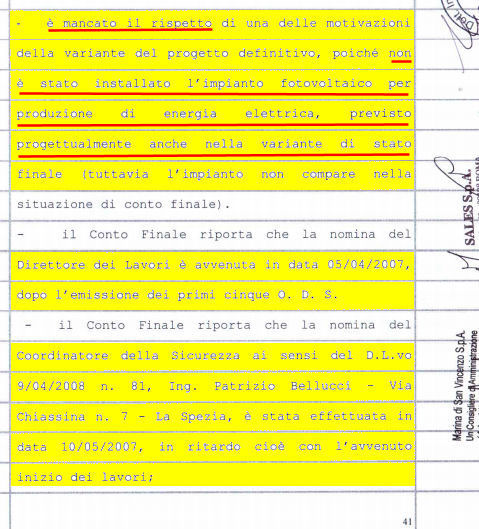 - è mancato il rispetto di una delle motivazioni
della variante del progetto definitivo, poiché non
è stato installato l'impianto fotovoltaico per
produzione di energia elettrica, previsto
progettualmente anche nella variante di stato
finale (tuttavia l'impianto non compare nella
situazione di conto finale).
- il Conto Finale riporta che la nomina del
Direttore dei Lavori è avvenuta in data 05/04/2007,
dopo l'emissione dei primi cinque O. D. S.
- il Conto Finale riporta che la nomina del
Coordinatore della Sicurezza ai sensi del D.L.vo
9/04/2008 n. 81, Ing. Patrizio Bellucci - Via
Chiassina n. 7 - La Spezia, è stata effettuata in
data 10/05/2007, in ritardo cioè con l'avvenuto
inizio dei lavori;
41
SALES S.p.A.
Marina di San Vincenzo S.p.A.
Un Consigliere di Amministrazione